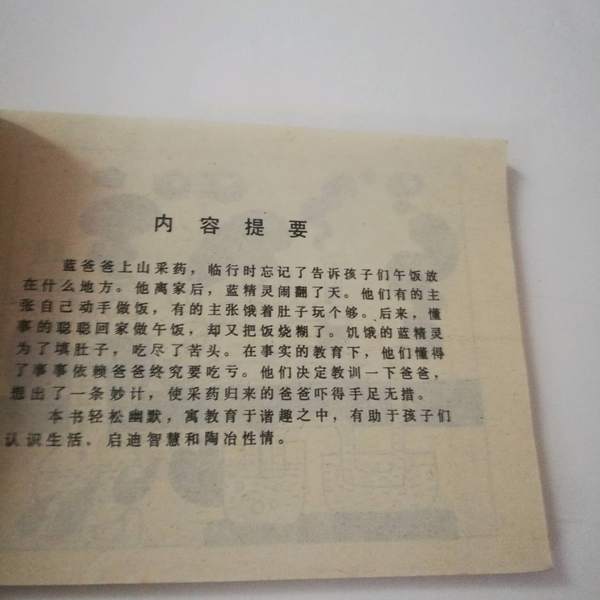 内容提要
蓝爸爸上山采药，临行时忘记了告诉孩子们午饭放
在什么地方。他离家后，蓝精灵闹翻了天。他们有的主
张自己动手做饭，有的主张饿着肚子玩个够。后来，懂
事的聪聪回家做午饭，却又把饭烧糊了。饥饿的蓝精灵
为了填肚子，吃尽了苦头。在事实的教育下，他们懂得
了事事依赖爸爸终究要吃亏。他们决定教训一下爸爸，
想出了一条妙计，使采药归来的爸爸吓得手足无措。
本书轻松幽默，寓教育于谐趣之中，有助于孩子们
认识生活、启迪智慧和陶冶性情。